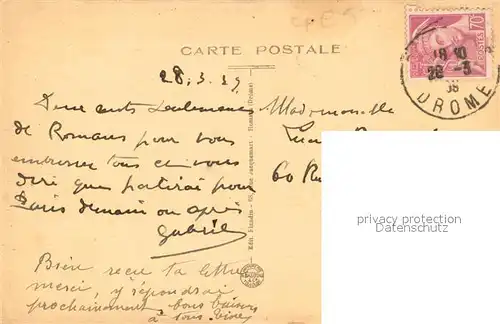 CARTE POSTALE
28.3.39
Deux mots seulement
de Romans pour vous
embrasser tous et vous
dire que partirai pour
Paris demain ou après
Gabriel
Bien reçu ta lettre
merci, y répondrai
prochainement, bons baisers
à tous
Mademoiselle
60 Ru
70c
POSTES
18 10
28 -3
DROME
privacy protection
Datenschutz